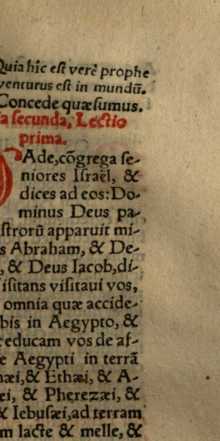 Quia hîc est verè prophe
venturus est in mundũ.
Concede quæsumus.
a secunda, Lectio
prima.
VAde, cõgrega se-
niores Israël, &
dices ad eos: Do-
minus Deus pa-
strorũ apparuit mi-
s Abraham, & De-
, & Deus Iacob, di-
isitans visitaui vos,
omnia quæ accide-
bis in Aegypto, &
educam vos de af-
e Aegypti in terrã
næi, & Ethæi, & A-
ei, & Pherezæi, &
& Iebusæi, ad terram
m lacte & melle, &